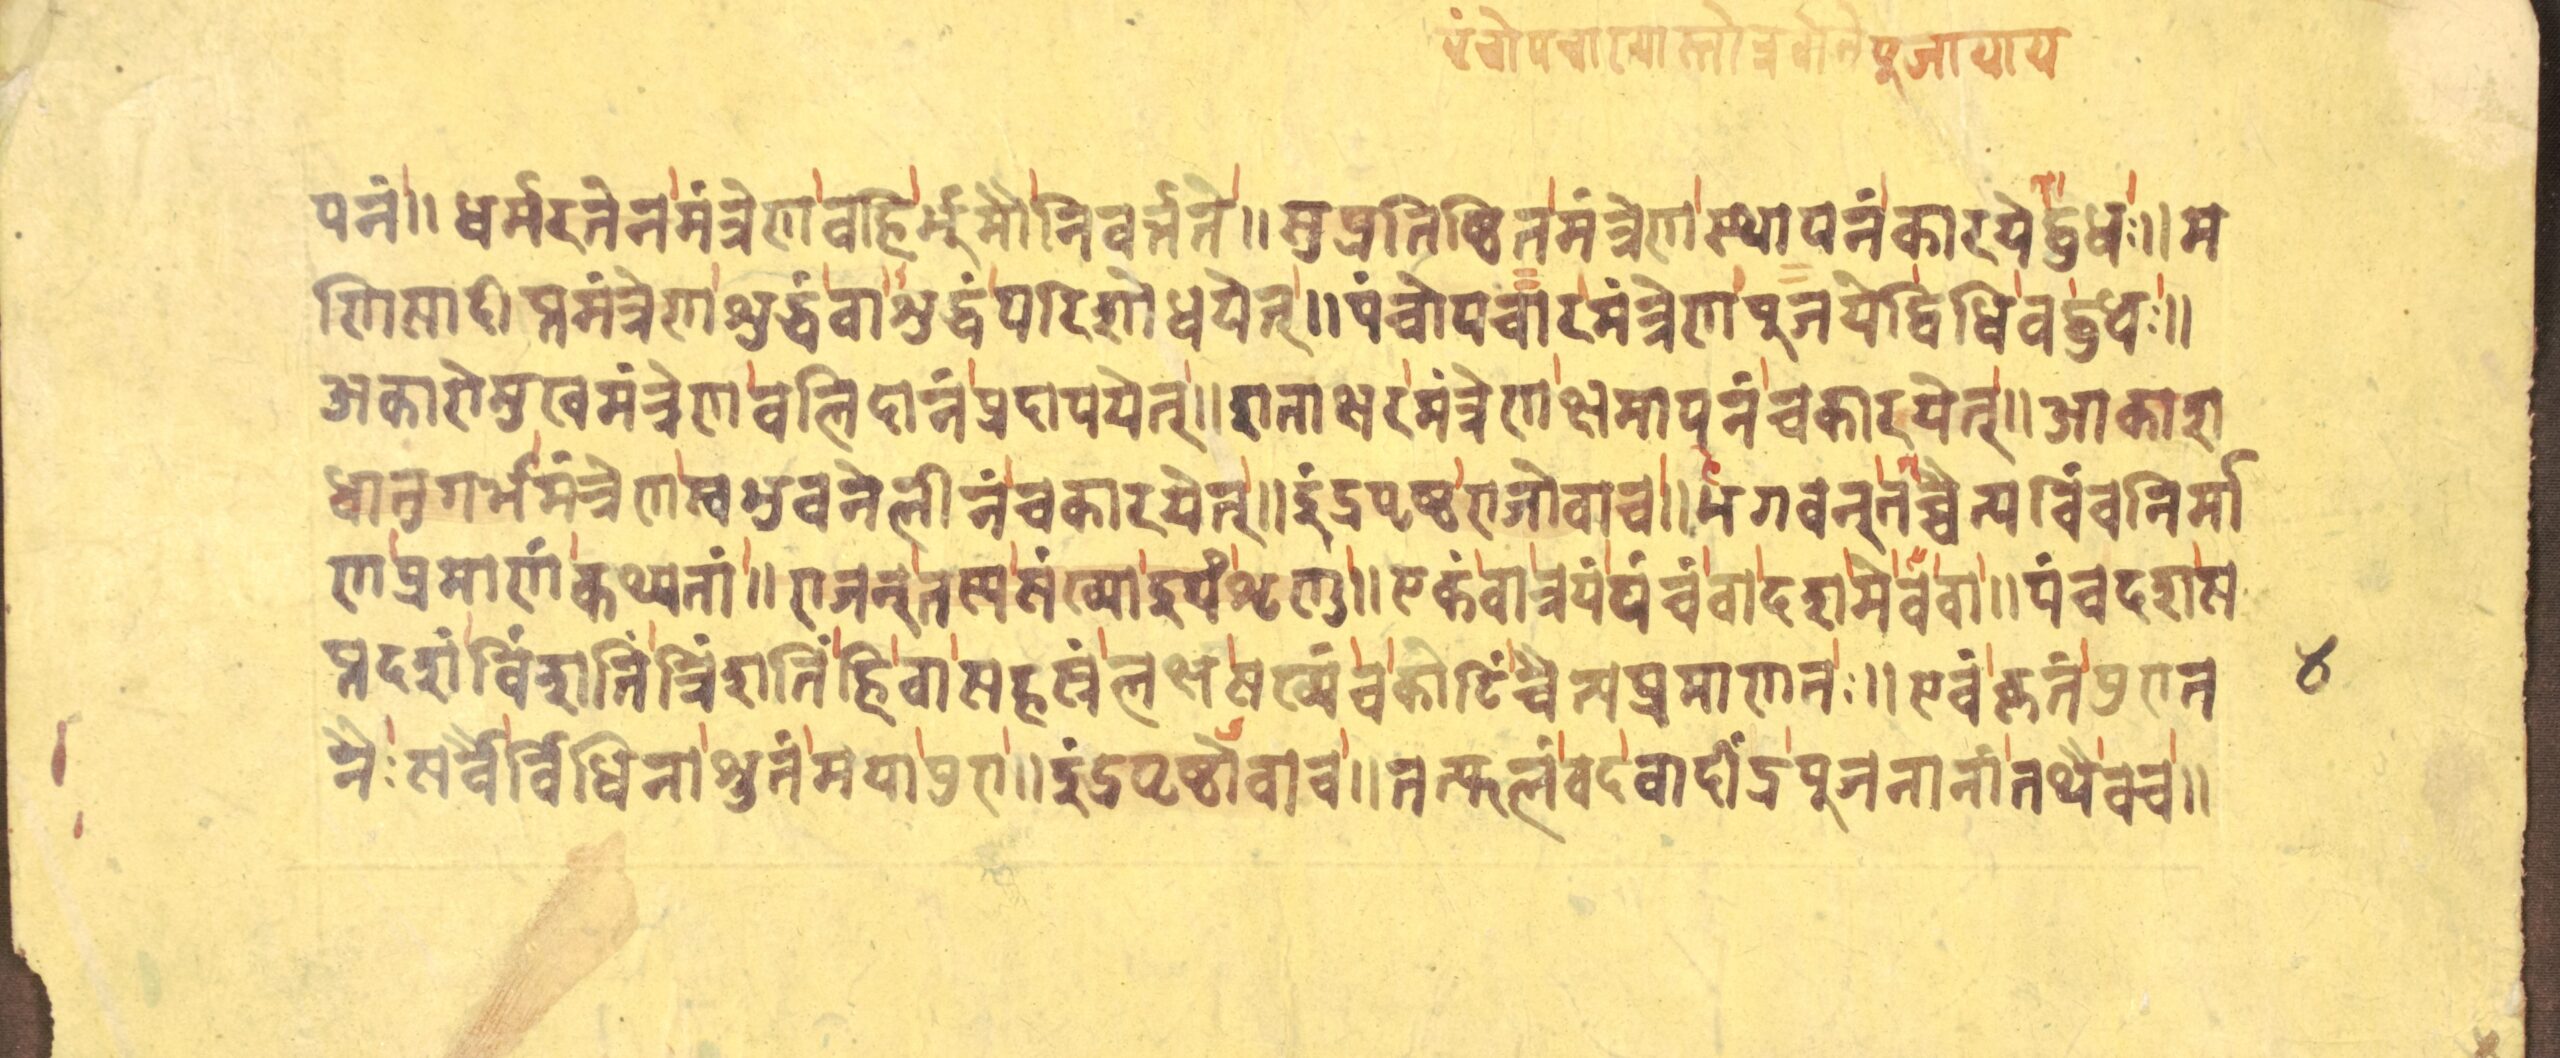 पूजायाय
पनं॥ धर्मरतेनमंत्रेणवहिर्भूमौनिवर्त्तते॥ सुप्रतिष्ठितमंत्रेणस्थापनंकारयेद्बुधः॥ म
णिसादीप्तमंत्रेणशुद्धंवाशुद्धंपरिशोधयेत्॥ पंचोपचारमंत्रेणपुजयेद्विधिवद्बुधः॥
अकारोमुखेमंत्रेणवलिदानंप्रदापयेत्॥ शताक्षरमंत्रेणक्षमापनंचकारयेत्॥ आकाश
धातुगर्भमंत्रेणस्वभुवनेलीनंचकारयेत्॥ इंद्रपृष्ठराजोवाच॥ भगवन्तच्चैत्यविंवनिर्मा
णप्रमाणंकथ्यतां॥ राजन्तस्यसंख्यादुयंशृणु॥ एकंवात्रयंपंचंवादशमेवंवा॥ पंचदशस
प्तदशंविंशतिंत्रिंशतिंहिवासहस्रंलक्षसख्यंचकोटिंचैत्यप्रमाणतः॥ एवंकृतंपुरात
नैःसर्वैर्विधिनाश्रुतंमयापुरा॥ इंद्रपृष्ठोवाच॥ तत्फलंवदवादींद्रपुजनानांतथैवच॥
४